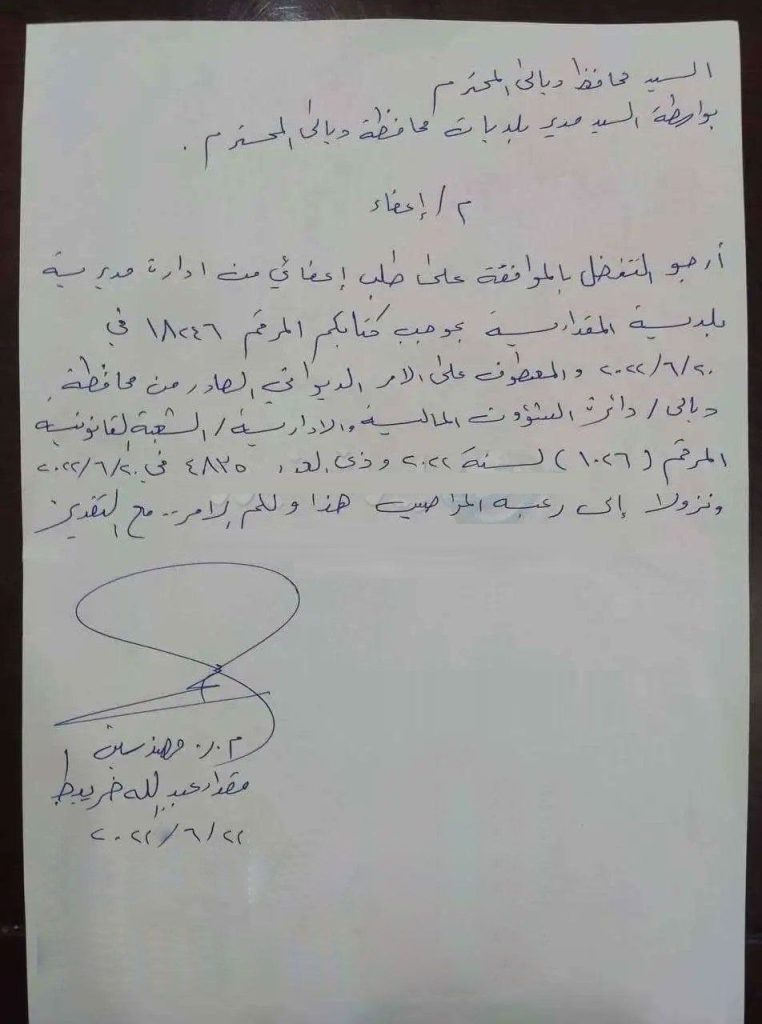 السيد محافظ ديالى المحترم
بواسطة السيد مدير بلديات محافظة ديالى المحترم .
م / إعفاء
أرجو التفضل بالموافقة على طلب إعفائي من ادارة مديرية
بلدية المقدادية بموجب كتابكم المرقم ١٨٢٤٦ في
٢٠٢٢/٦/٢٠ والمعطوف على الامر الديواني الصادر من محافظة
ديالى / دائرة الشؤون المالية والادارية / الشعبة القانونية
المرقم (١٠٢٦) لسنة ٢٠٢٢ وذي العدد ٤٨٣٥ في ٢٠٢٢/٦/٢٠
ونزولا إلى رغبة المراضين هذا ولكم الامر .. مع التقدير
م.ر. مهندسين
مقداد عبدالله خريبط
٢٠٢٢/٦/٢٢